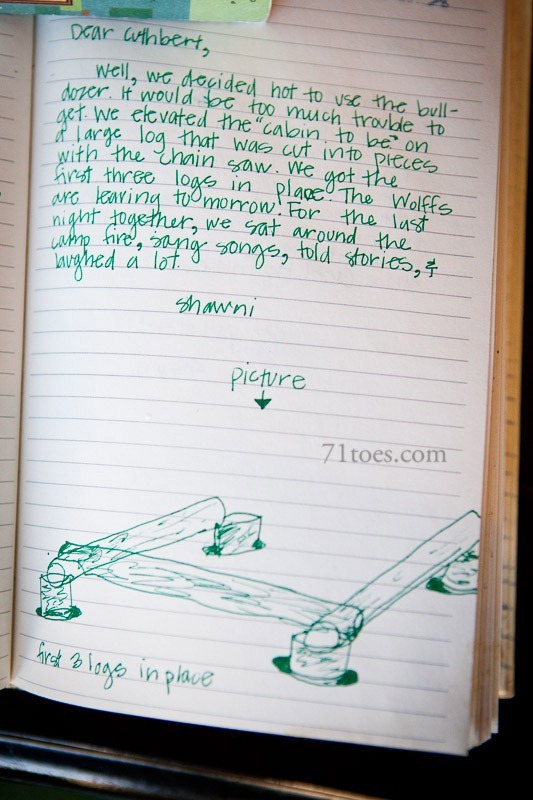 Dear Cuthbert,
Well, we decided not to use the bull-
dozer. It would be too much trouble to
get. We elevated the "cabin to be" on
a large log that was cut into pieces
with the chain saw. We got the
first three logs in place. The Wolffs
are leaving tomorrow! For the last
night together, we sat around the
camp fire, sang songs, told stories, &
laughed a lot.
Shawni
picture
71toes.com
first 3 logs in place